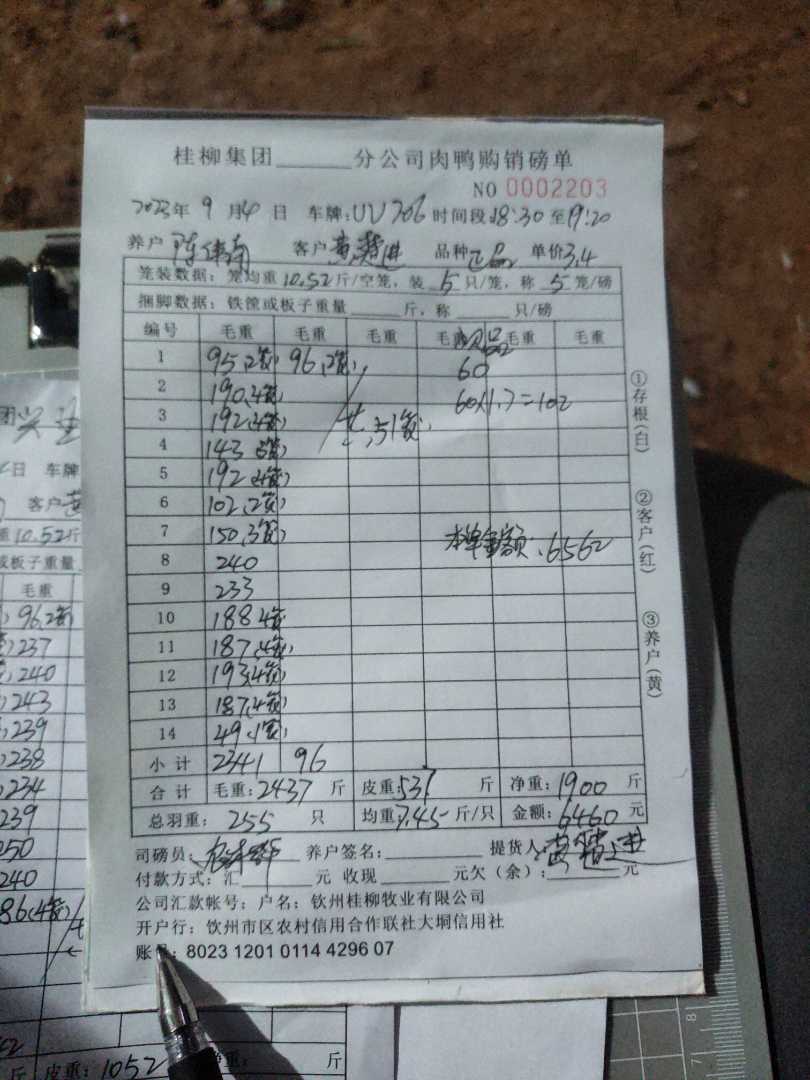 桂柳集团______分公司肉鸭购销磅单
NO 0002203
2023年 9 月 4 日 车牌:UV706 时间段18:30至19:20
养户 陈伟南 客户 黄 进 品种 正品 单价3.4
笼装数据: 笼均重10.52斤/空笼, 装 5 只/笼, 称 5 笼/磅
捆脚数据: 铁筐或板子重量______斤, 称______只/磅
编号 毛重 毛重 毛重 毛重 毛重 毛重
1 95(2笼) 96(2笼) 60
2 190(4笼) 60×1.7=102
3 192(4笼) 共51笼
4 143(3笼)
5 192(4笼)
6 102(2笼)
7 150(3笼) 本单金额:6562
8 240
9 233
10 188 4笼
11 187(4笼)
12 193(4笼)
13 187(4笼)
14 49(1笼)
小计 2341 96
合计 毛重:2437 斤 皮重:537 斤 净重:1900 斤
总羽重: 255 只 均重7.45斤/只 金额:6460元
司磅员: 养户签名: 提货人:黄 进
付款方式: 汇______元 收现______元欠(余):______元
公司汇款帐号: 户名: 钦州桂柳牧业有限公司
开户行: 钦州市区农村信用合作联社大垌信用社
账号: 8023 1201 0114 4296 07
①存根(白)
②客户(红)
③养户(黄)
团
日 车牌
客户
重10.52斤
或板子重量
毛重
96(2笼)
237
240
243
239
238
234
239
250
240
86(4笼)
斤 皮重:1052 净重: 斤